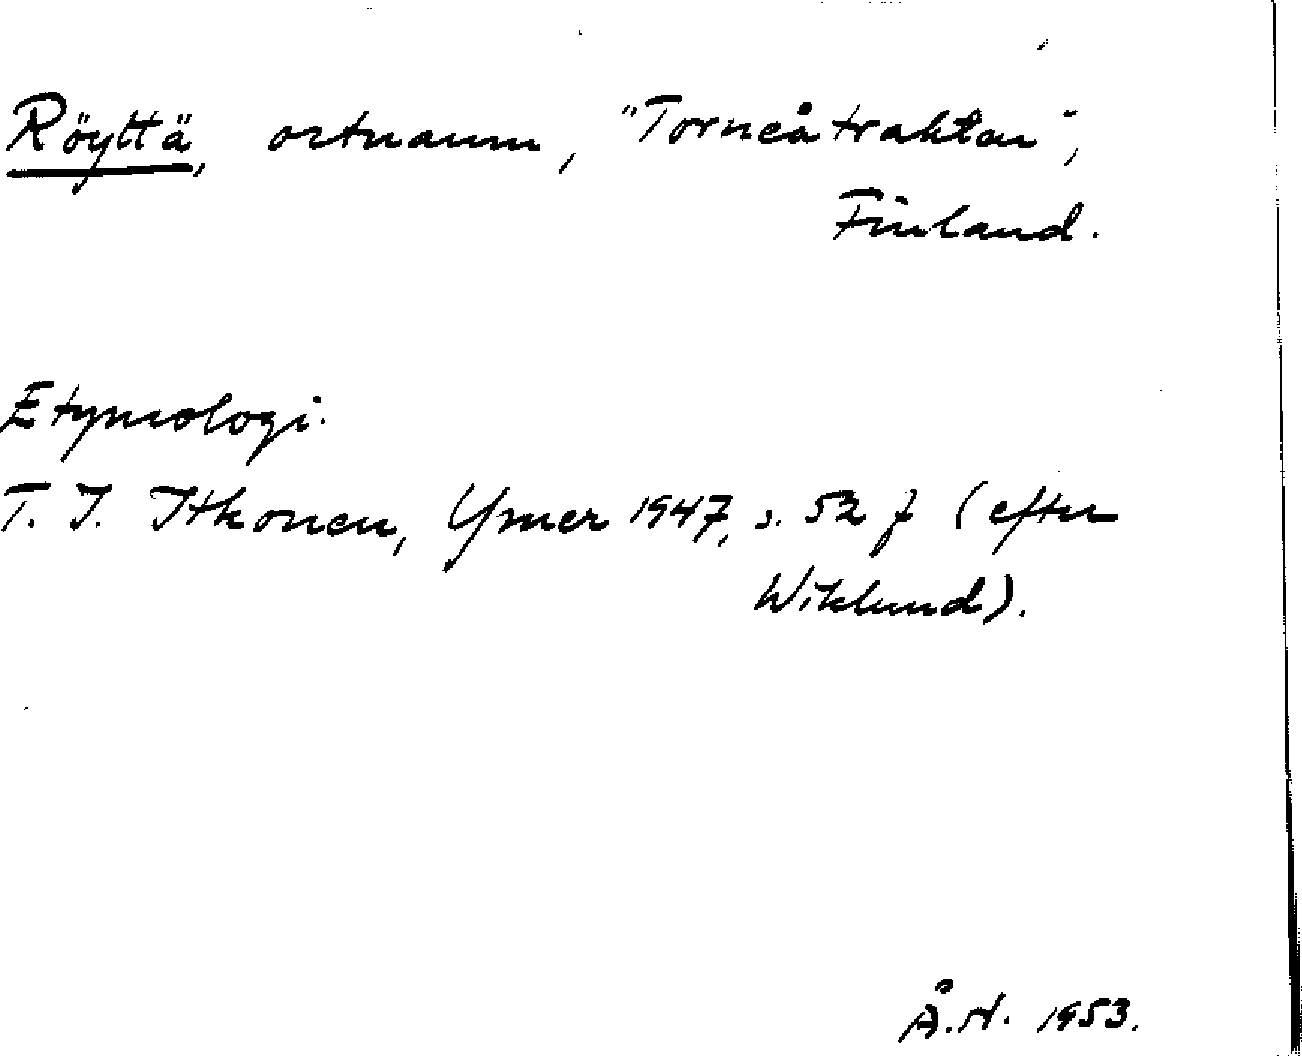 Röyttä, ortnamn, "Torneåtraktan",
Finland.
Etymologi.
T. I. Itkonen, Ymer 1947, s. 52 f (efter
Wiklund).
Å.N. 1953.